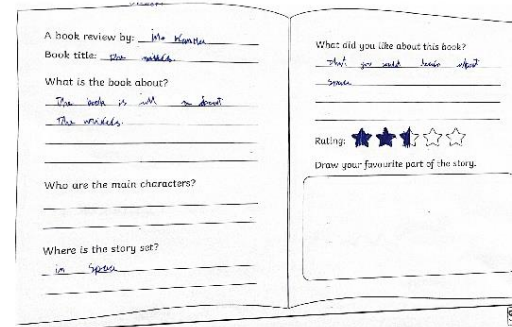 A book review by:
Book title: The
What is the book about?
The book is all about
The
Who are the main characters?
Where is the story set?
in Space
What did you like about this book?
that you could learn about
space
Rating:
Draw your favourite part of the story.